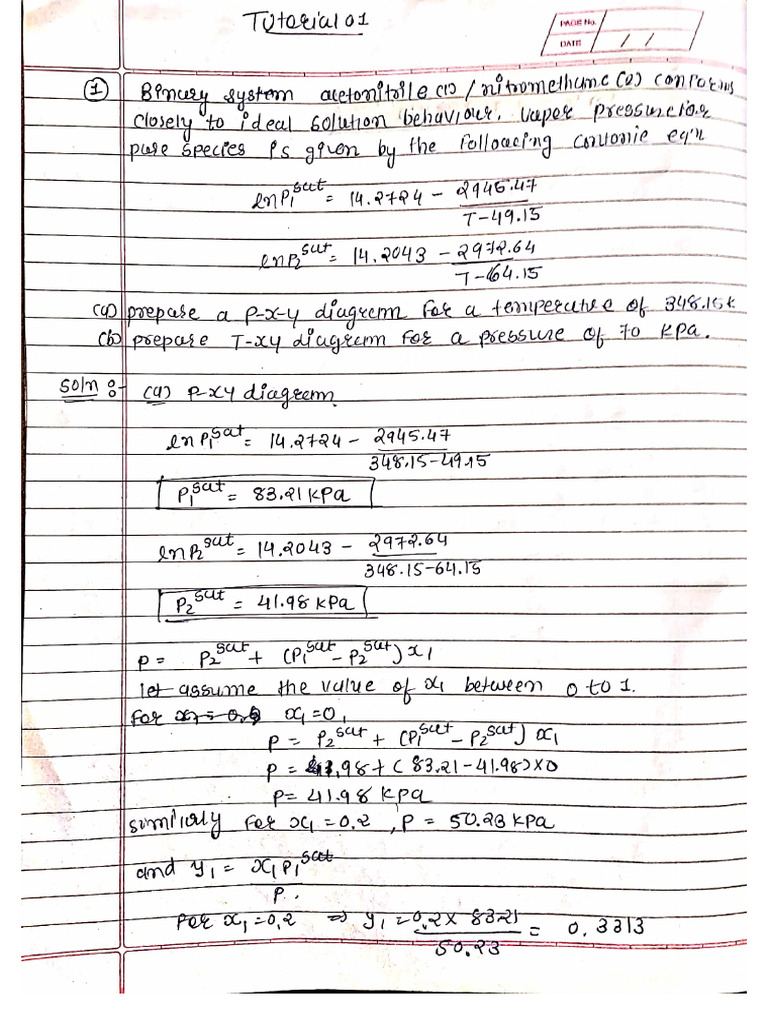 Tutorial 01
PAGE No.
DATE / /
① Binary system acetonitrile (1) / nitromethane (2) conforms
closely to ideal solution behaviour. vapor pressure for
pure species is given by the following eqn
ln P₁^sat = 14.2724 - 2945.47 / T-49.15
ln P₂^sat = 14.2043 - 2972.64 / T-64.15
(a) prepare a P-x-y diagram for a temperature of 348.15k
(b) prepare T-xy diagram for a pressure of 70 kpa.
Soln :- (a) P-xy diagram
ln P₁^sat = 14.2724 - 2945.47 / 348.15-49.15
P₁^sat = 83.21 kPa
ln P₂^sat = 14.2043 - 2972.64 / 348.15-64.15
P₂^sat = 41.98 kPa
P = P₂^sat + (P₁^sat - P₂^sat) x₁
let assume the value of x₁ between 0 to 1.
For x₁=0,
P = P₂^sat + (P₁^sat - P₂^sat) x₁
P = 41.98 + (83.21-41.98)×0
P = 41.98 kPa
similarly for x₁=0.2, P = 50.23 kPa
and y₁ = x₁P₁^sat / P.
For x₁=0.2 ⇒ y₁ = 0.2 × 83.21 / 50.23 = 0.3313